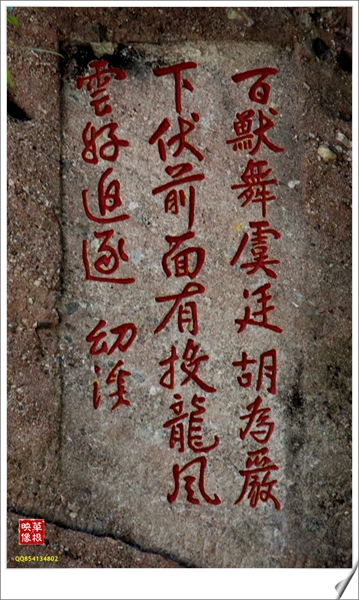 百獸舞虞廷胡为嚴
下伏前面有投龍风
雲好追逐 幼溪
草根
映像
QQ854134802